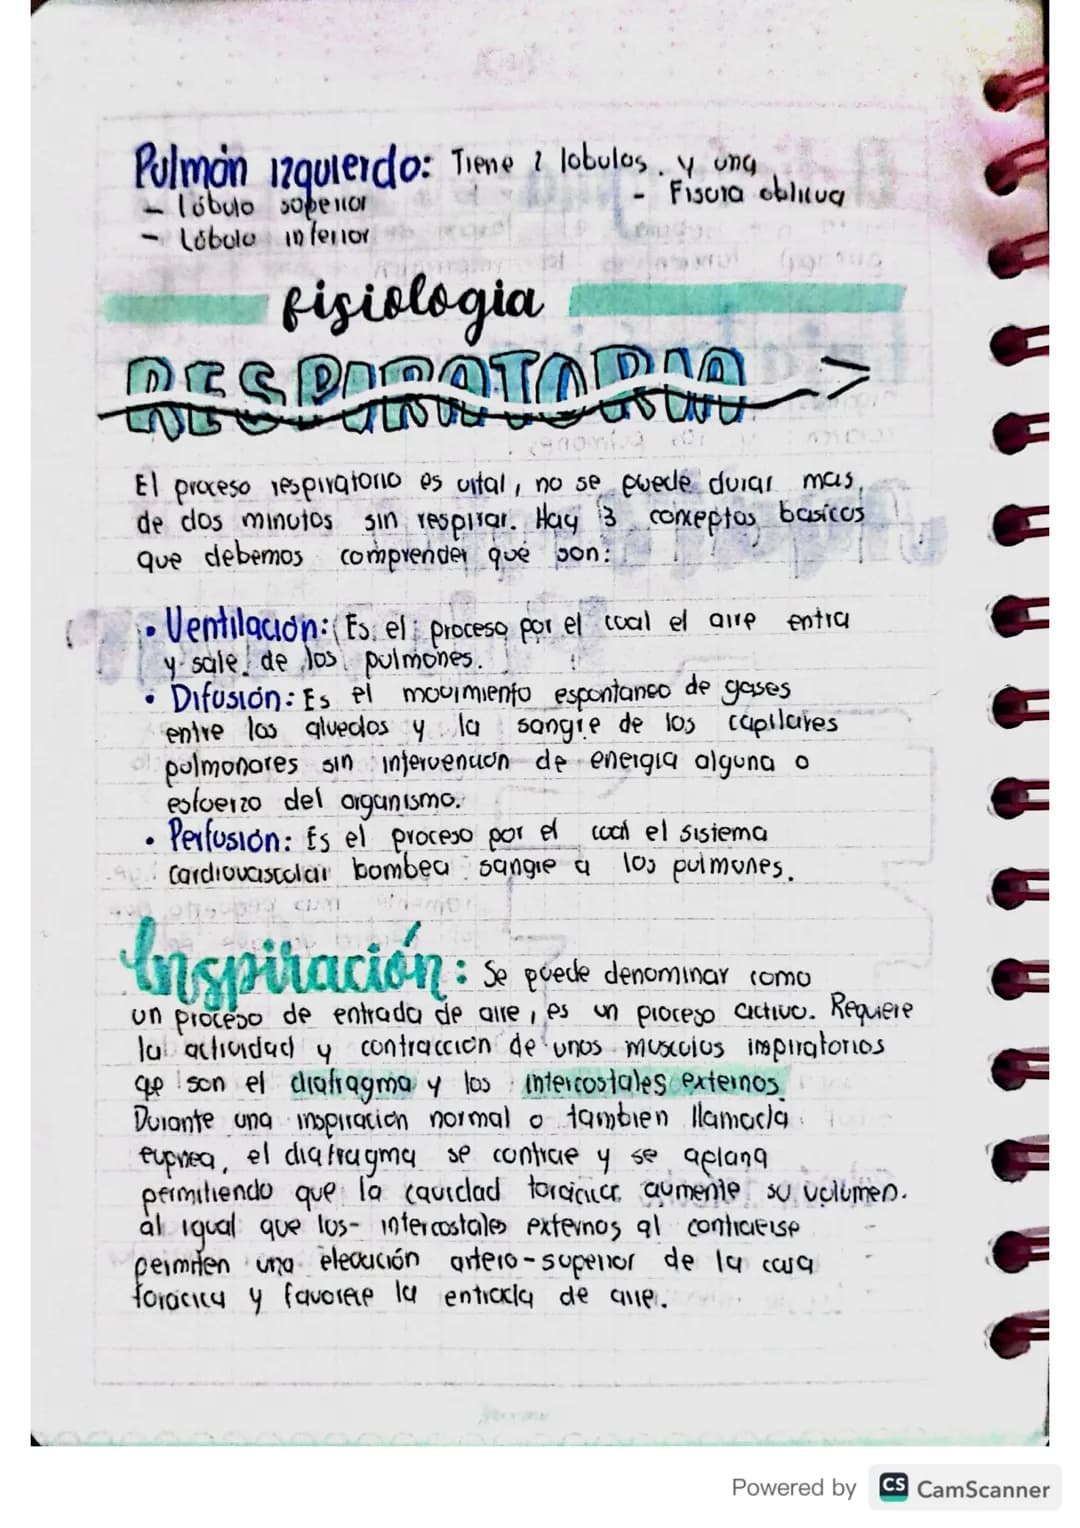 Pulmón izquierdo: Tiene 2 lobulos. y una
- lóbulo superior - Fisura oblicua
- Lóbulo inferior
fisiologia
RESPIRATORIA
El proceso respiratorio es vital, no se puede durar mas
de dos minutos sin respirar. Hay 3 conceptos basicos
que debemos comprender que son:
• Ventilación: Es el proceso por el cual el aire entra
y sale de los pulmones.
• Difusión: Es el movimiento espontaneo de gases
entre los alveolos y la sangre de los capilares
pulmonares sin intervención de energia alguna o
esfuerzo del organismo.
• Perfusión: Es el proceso por el cual el sistema
cardiovascular bombea sangre a los pulmones.
Inspiración: Se puede denominar como
un proceso de entrada de aire, es un proceso activo. Requiere
la actividad y contracción de unos musculos inspiratorios
que son el diafragma y los intercostales externos.
Durante una inspiracion normal o tambien llamada
eupnea, el diafragma se contrae y se aplana
permitiendo que la cavidad toracica aumente su volumen.
al igual que los- intercostales externos al contraerse
permiten una elevación antero-superior de la caja
toracica y favorece la entrada de aire.
Powered by CS CamScanner